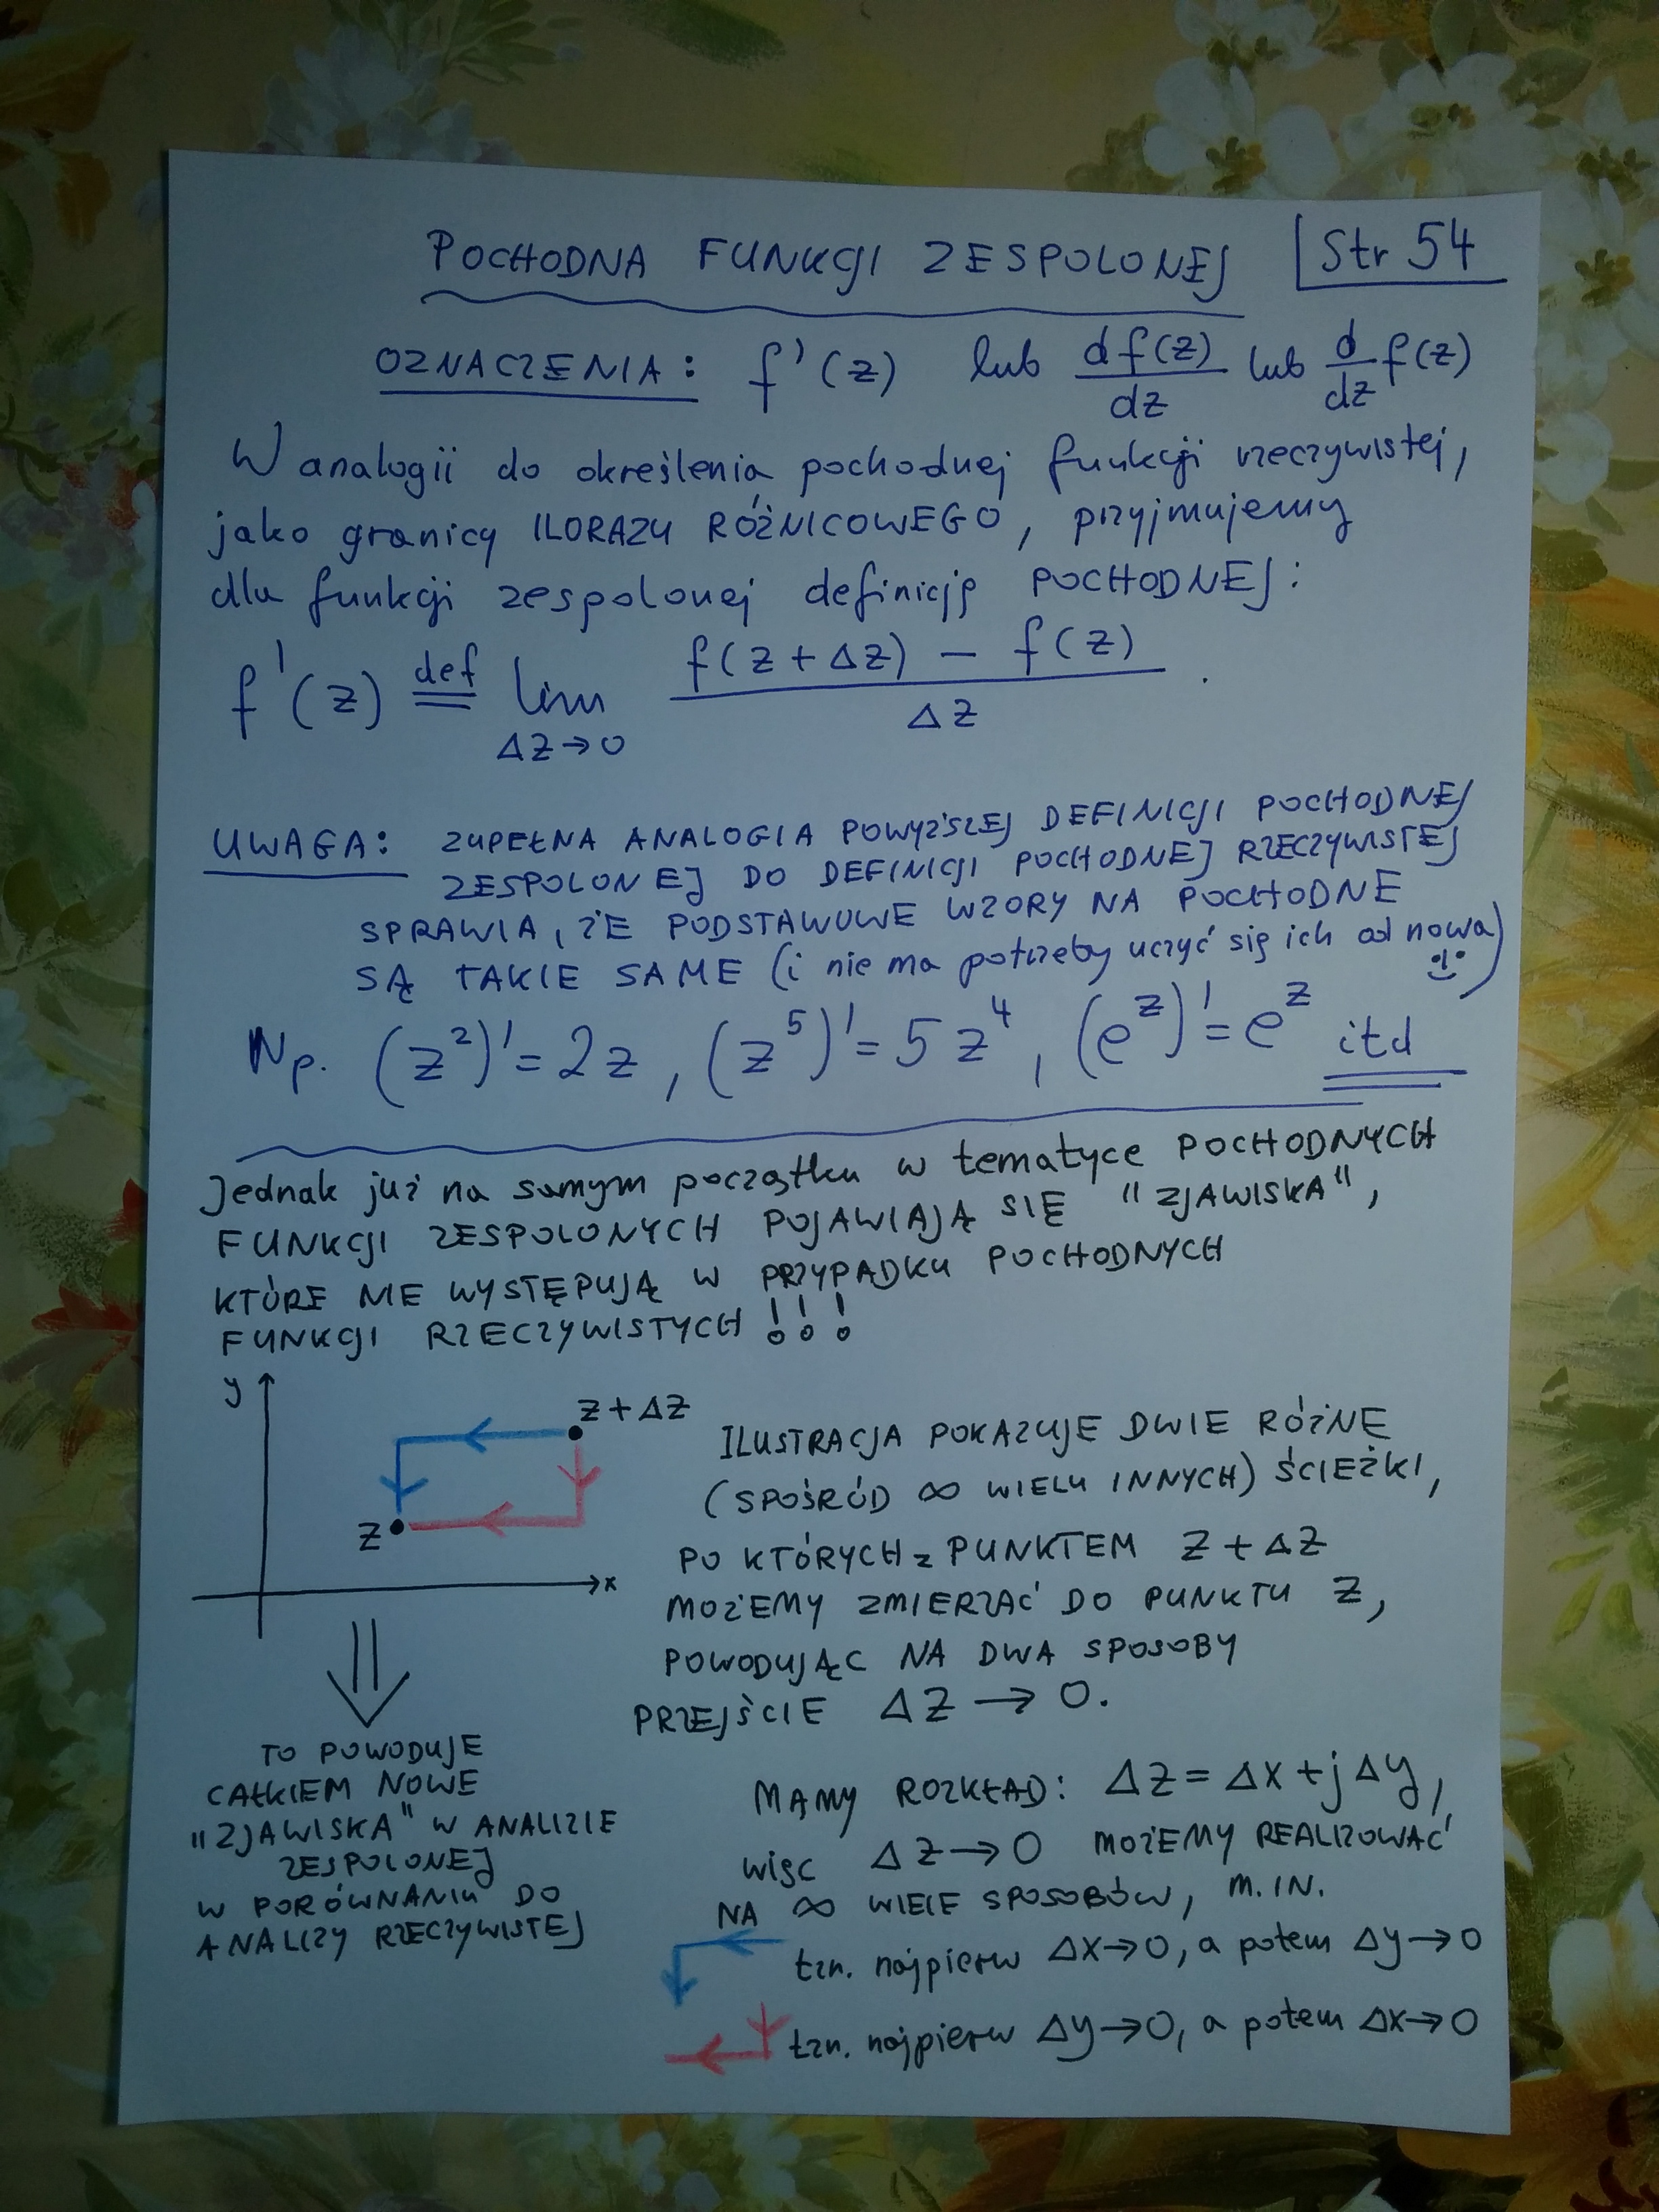 POCHODNA FUNKCJI ZESPOLONEJ
Str 54
OZNACZENIA: f'(z) lub df(z)/dz lub d/dz f(z)
W analogii do określenia pochodnej funkcji rzeczywistej,
jako granicy ILORAZU RÓŻNICOWEGO, przyjmujemy
dla funkcji zespolonej definicję POCHODNEJ:
f'(z) def= lim Δz→0 (f(z+Δz) − f(z))/Δz .
UWAGA: ZUPEŁNA ANALOGIA POWYŻSZEJ DEFINICJI POCHODNEJ
ZESPOLONEJ DO DEFINICJI POCHODNEJ RZECZYWISTEJ
SPRAWIA, ŻE PODSTAWOWE WZORY NA POCHODNE
SĄ TAKIE SAME (i nie ma potrzeby uczyć się ich od nowa)
Np. (z²)'=2z, (z⁵)'=5z⁴, (e^z)'=e^z itd
Jednak już na samym początku w tematyce POCHODNYCH
FUNKCJI ZESPOLONYCH POJAWIAJĄ SIĘ "ZJAWISKA",
KTÓRE NIE WYSTĘPUJĄ W PRZYPADKU POCHODNYCH
FUNKCJI RZECZYWISTYCH !!!
y
z+Δz
z
x
ILUSTRACJA POKAZUJE DWIE RÓŻNE
(SPOŚRÓD ∞ WIELU INNYCH) ŚCIEŻKI,
PO KTÓRYCH z PUNKTEM z+Δz
MOŻEMY ZMIERZAĆ DO PUNKTU z,
POWODUJĄC NA DWA SPOSOBY
PRZEJŚCIE Δz → 0.
TO POWODUJE
CAŁKIEM NOWE
"ZJAWISKA" W ANALIZIE
ZESPOLONEJ
W PORÓWNANIU DO
ANALIZY RZECZYWISTEJ
MAMY ROZKŁAD: Δz = Δx + jΔy,
więc Δz→0 MOŻEMY REALIZOWAĆ
NA ∞ WIELE SPOSOBÓW, M.IN.
tzn. najpierw Δx→0, a potem Δy→0
tzn. najpierw Δy→0, a potem Δx→0